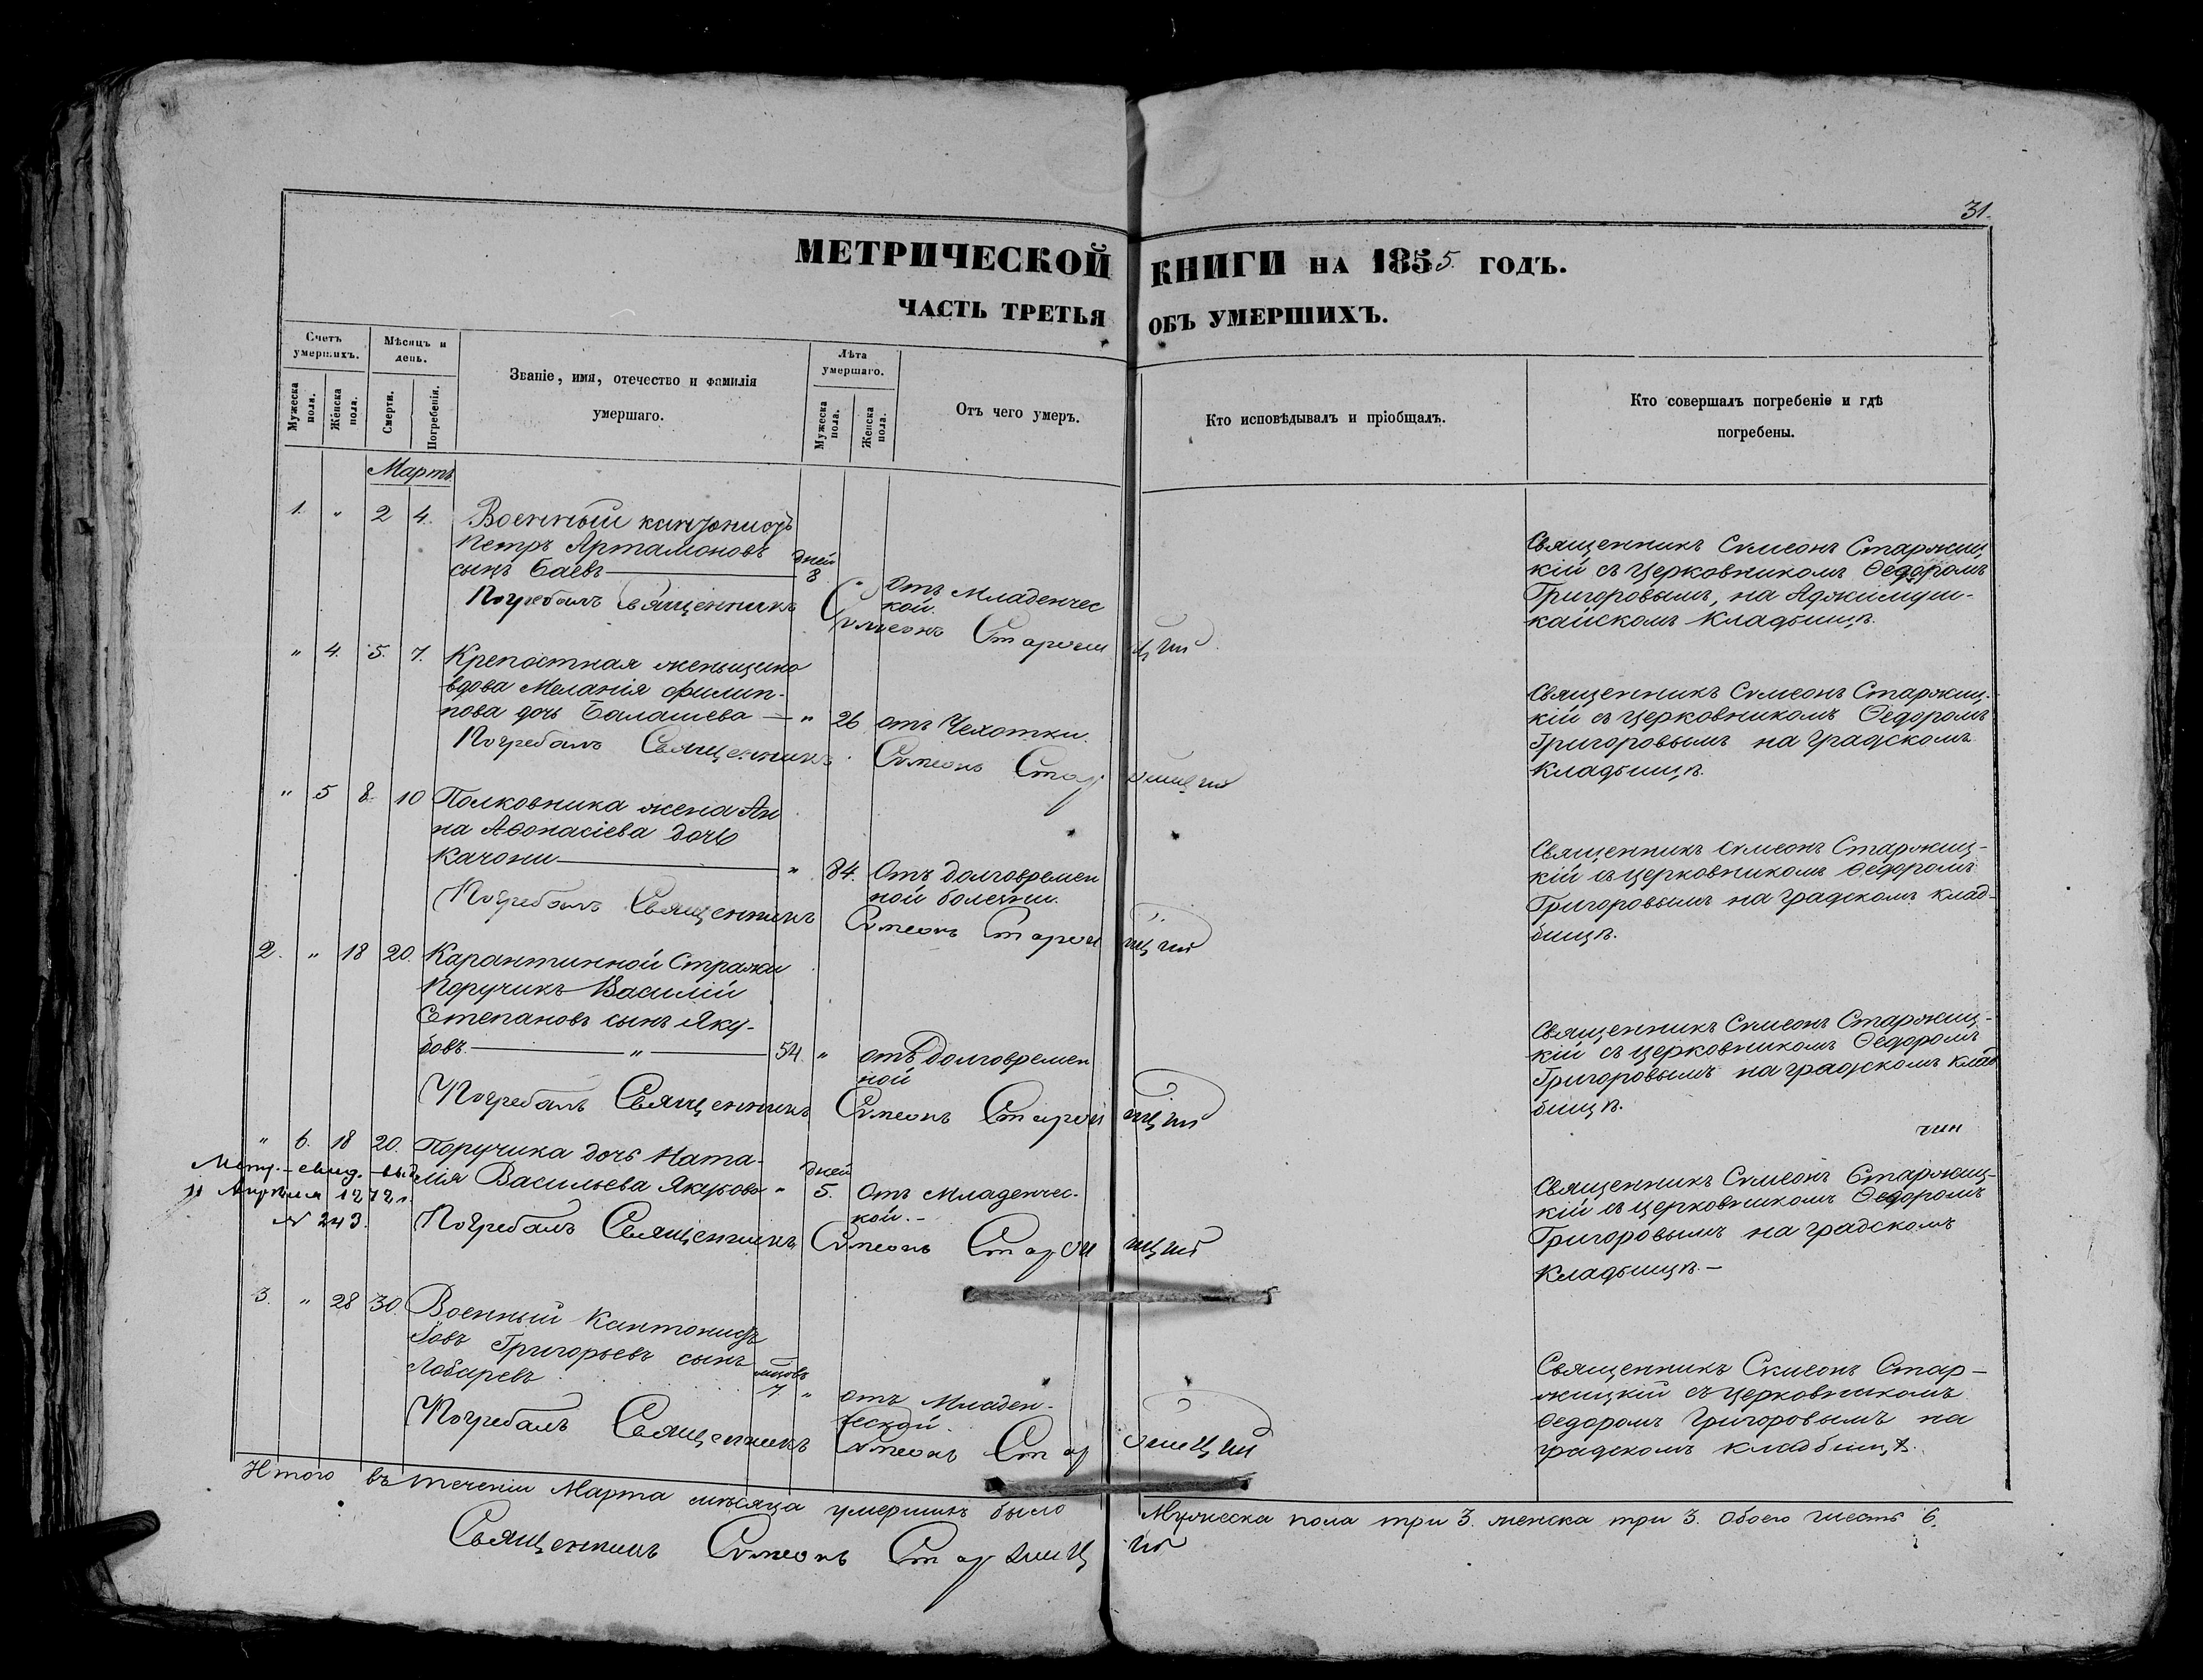 31.
МЕТРИЧЕСКОЙ КНИГИ НА 1855. ГОДЪ.
ЧАСТЬ ТРЕТЬЯ ОБЪ УМЕРШИХЪ.
Счетъ умершихъ.
Мужеска пола.
Женска пола.
Мѣсяцъ и день.
Смерти.
Погребенія.
Званіе, имя, отечество и фамилія
умершаго.
Лѣта умершаго.
Мужеска пола.
Женска пола.
Отъ чего умеръ.
Кто исповѣдывалъ и пріобщалъ.
Кто совершалъ погребеніе и гдѣ
погребены.
Мартъ
1. " 2 4. Военный кантонистъ
Петръ Артамоновъ
сынъ Баевъ — дней 8 " Отъ Младенчес
кой.
Священникъ Симеонъ Старжиц
кій съ церковникомъ Ѳедоромъ
Григоровымъ, на Аджимуш-
кайскомъ Кладбищѣ.
Погребалъ Священникъ Симеонъ Старжицкій
" 4. 5. 7. Крепостная женьщина
вдова Меланія Филип-
пова дочь Балашева — " 26 отъ Чехотки.
Священникъ Симеонъ Старжиц-
кій съ церковникомъ Ѳедоромъ
Григоровымъ на градскомъ
Кладбищѣ.
Погребалъ Священникъ Симеонъ Старжицкій
" 5 8. 10 Полковника жена Ан
на Аѳонасіева дочь
Качони — " 84. Отъ долговремен
ной болезни.
Священникъ Симеонъ Старжиц-
кій съ церковникомъ Ѳедоромъ
Григоровымъ на градскомъ клад-
бищѣ.
Погребалъ Священникъ Симеонъ Старжицкій
2. " 18 20. Карантинной Стражи
Поручикъ Василій
Степановъ сынъ Яку-
бовъ. — " — 54. " отъ долговремен
ной
Священникъ Симеонъ Старжиц-
кій съ церковникомъ Ѳедоромъ
Григоровымъ на градскомъ клад
бищѣ.
Погребалъ Священникъ Симеонъ Старжицкій
" 6. 18 20. Поручика дочь Ната-
лія Васильева Якубова " дней 5. Отъ Младенчес-
кой. -
Метр. - свид. - выд.
11 Апрѣля 1872 г.
№ 243.
Священникъ Симеонъ Старжиц-
кій съ церковникомъ Ѳедоромъ
Григоровымъ на градскомъ
Кладбищѣ. —
Погребалъ Священникъ Симеонъ Старжицкій
3. " 28 30. Военный Кантонистъ
Іовъ Григорьевъ сынъ
Лобаревъ 7. " отъ Младен-
ческой.
Священникъ Симеонъ Стар-
жицкій съ церковникомъ
Ѳедоромъ Григоровымъ на
градскомъ кладбищѣ.
Погребалъ Священникъ Симеонъ Старжицкій
Итого въ теченіи Марта мѣсяца умершихъ было Мужеска пола три 3. женска три 3. Обоего шесть 6.
Священникъ Симеонъ Старжицкій